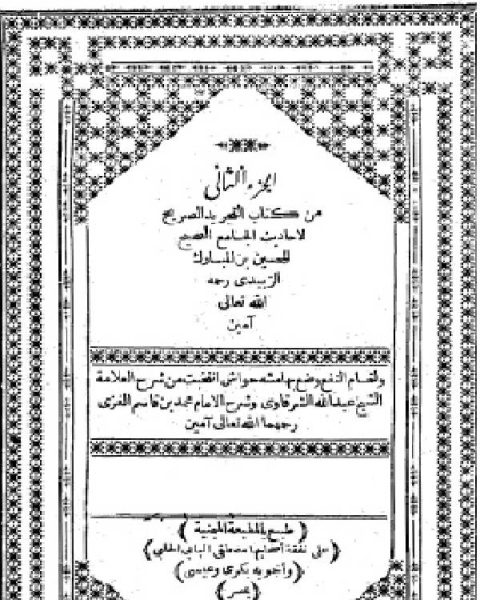 الجزء الثانى
من كتاب التجريد الصريح
لاحاديث الجامع الصحيح
للحسين بن المبارك
الزبيدى رحمه
الله تعالى
آمين
ولتمام النفع وضع بهامشه حواش اقتضبت من شرح العلامة
الشيخ عبدالله الشرقاوى وشرح الامام محمد بن قاسم الغزى
رحمهما الله تعالى آمين
(طبع بالمطبعة الميمنية)
(على نفقة أصحابها مصطفى البابى الحلبى)
(وأخويه بكرى وعيسى)
(بمصر)